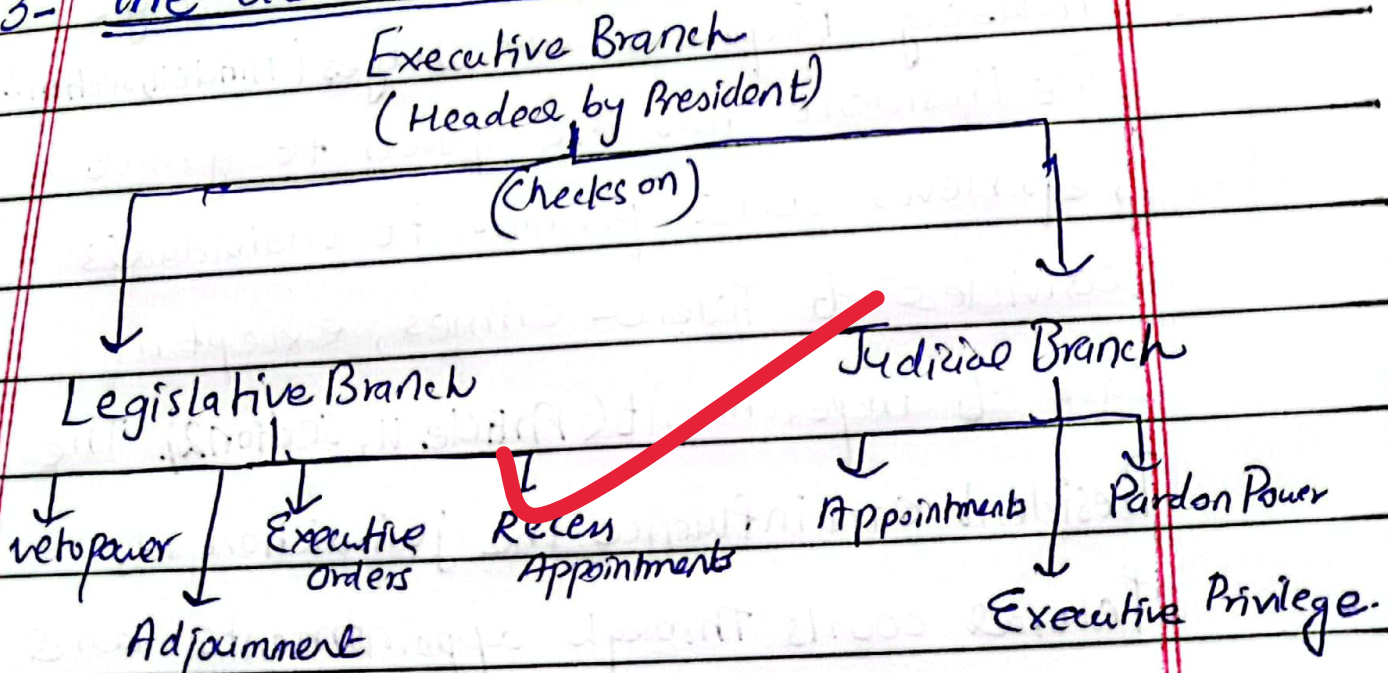 3- the
Executive Branch
(Headed by President)
(Checks on)
Legislative Branch
Judicial Branch
vetopower
Executive
orders
Recess
Appointments
Appointments
Pardon Power
Adjournment
Executive Privilege.